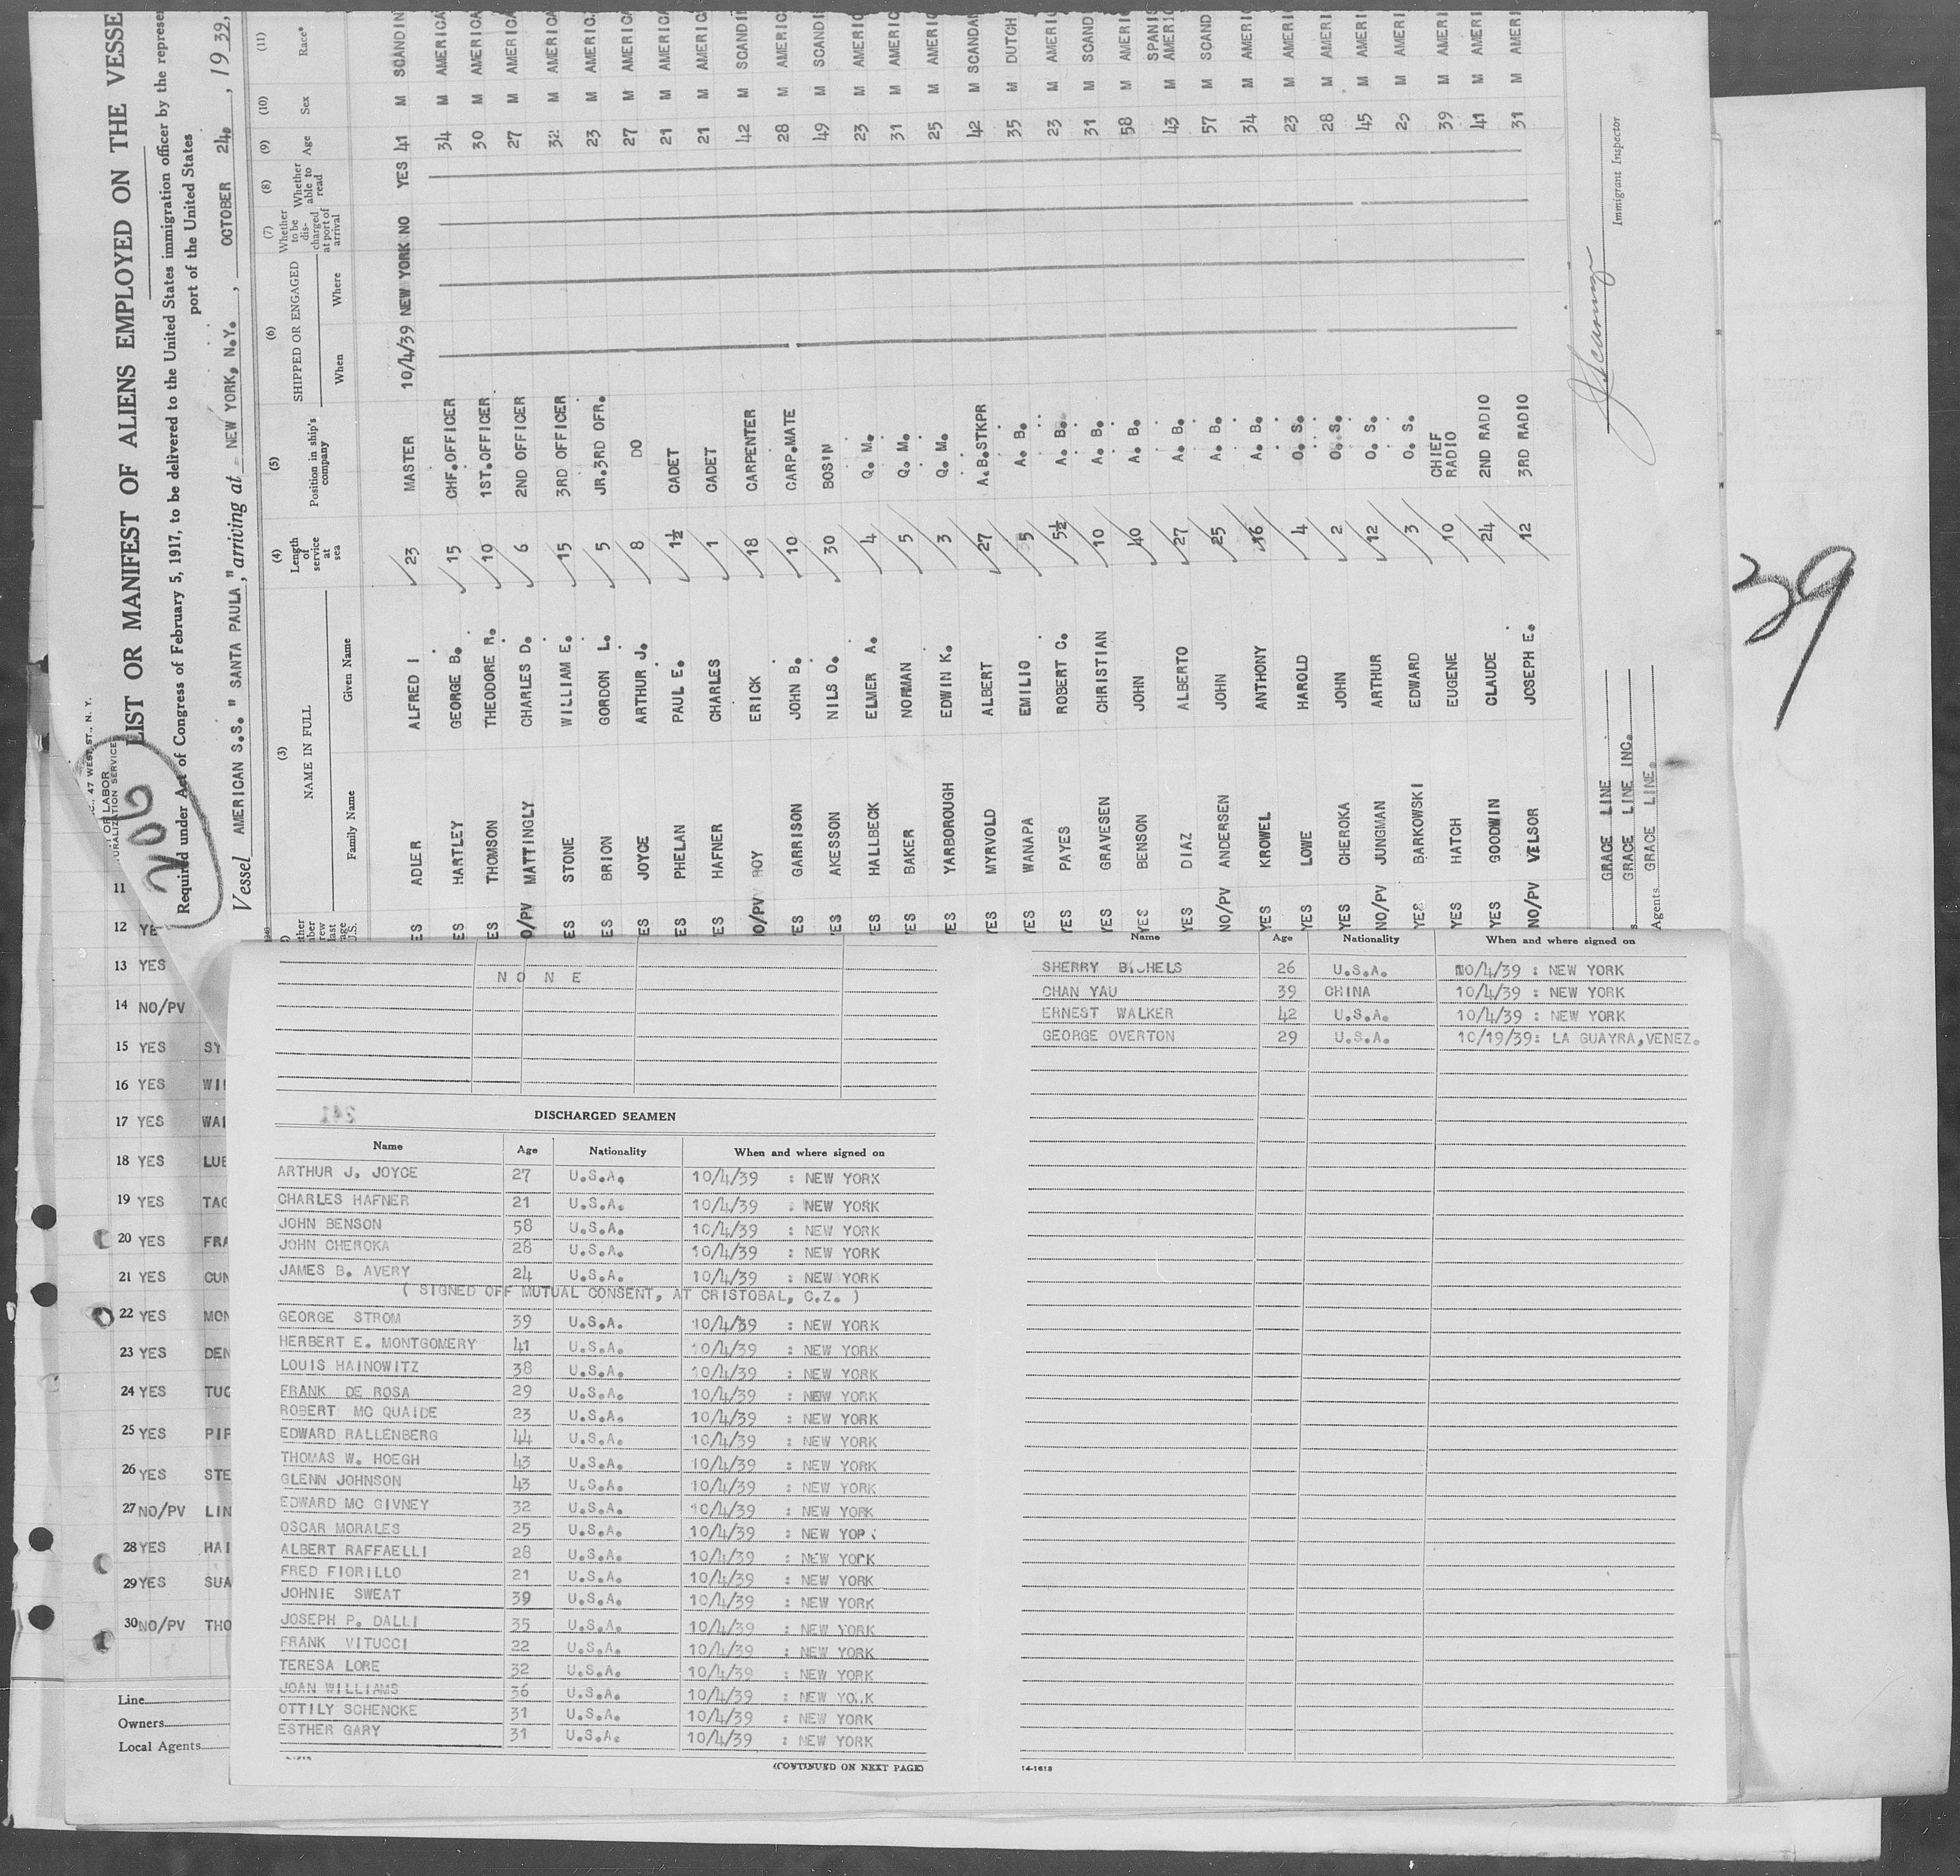 LIST OR MANIFEST OF ALIENS EMPLOYED ON THE VESSE
Required under Act of Congress of February 5, 1917, to be delivered to the United States immigration officer by the represe
port of the United States
Vessel AMERICAN S.S. " SANTA PAULA," arriving at NEW YORK, N.Y. , OCTOBER 24, 19 39,
47 WEST ST., N. Y.
OF LABOR
URALIZATION SERVICE
206
(3) (4) (5) (6) (7) (8) (9) (10) (11)
NAME IN FULL Length of service at sea Position in ship's company SHIPPED OR ENGAGED Whether to be discharged at port of arrival Whether able to read Age Sex Race*
Family Name Given Name When Where
ES ADLER ALFRED I 23 MASTER 10/4/39 NEW YORK NO YES 41 M SCANDIN
ES HARTLEY GEORGE B. 15 CHF.OFFICER 34 M AMERICA
ES THOMSON THEODORE R. 10 1ST.OFFICER 30 M AMERICA
O/PV MATTINGLY CHARLES D. 6 2ND OFFICER 27 M AMERICA
ES STONE WILLIAM E. 15 3RD OFFICER 32 M AMERICA
ES BRION GORDON L. 5 JR.3RD OFR. 23 M AMERICA
ES JOYCE ARTHUR J. 8 DO 27 M AMERICA
ES PHELAN PAUL E. 1½ CADET 21 M AMERICA
ES HAFNER CHARLES 1 CADET 21 M AMERICA
O/PV ROY ERICK 18 CARPENTER 42 M SCANDI
ES GARRISON JOHN B. 10 CARP.MATE 28 M AMERIC
ES AKESSON NILS O. 30 BOSIN 49 M SCANDI
ES HALLBECK ELMER A. 4 Q. M. 23 M AMERIC
ES BAKER NORMAN 5 Q. M. 31 M AMERIC
ES YARBOROUGH EDWIN K. 3 Q. M. 25 M AMERIC
YES MYRVOLD ALBERT 27 A.B.STKPR 42 M SCANDA
YES WANAPA EMILIO 5 A. B. 35 M DUTCH
YES PAYES ROBERT C. 5½ A. B. 23 M AMERI
YES GRAVESEN CHRISTIAN 10 A. B. 31 M SCAND
YES BENSON JOHN 40 A. B. 58 M AMERI
YES DIAZ ALBERTO 27 A. B. 43 M SPANIS AMERIC
NO/PV ANDERSEN JOHN 25 A. B. 57 M SCAND
YES KROWEL ANTHONY 16 A. B. 34 M AMERI
YES LOWE HAROLD 4 O. S. 23 M AMERI
YES CHEROKA JOHN 2 O. S. 28 M AMERI
NO/PV JUNGMAN ARTHUR 12 O. S. 45 M AMERI
YES BARKOWSKI EDWARD 3 O. S. 23 M AMERI
YES HATCH EUGENE 10 CHIEF RADIO 39 M AMERI
YES GOODWIN CLAUDE 24 2ND RADIO 41 M AMERI
NO/PV VELSOR JOSEPH E. 12 3RD RADIO 31 M AMERI
GRACE LINE
GRACE LINE INC.
Agents GRACE LINE.
Immigrant Inspector
39
11
12 YE
13 YES
14 NO/PV
15 YES SY
16 YES WI
17 YES WAI
18 YES LUE
19 YES TAG
20 YES FRA
21 YES CUN
22 YES MON
23 YES DEN
24 YES TUG
25 YES PIF
26 YES STE
27 NO/PV LIN
28 YES HAI
29 YES SUA
30 NO/PV THO
Line
Owners
Local Agents
N O N E
241
DISCHARGED SEAMEN
Name Age Nationality When and where signed on
ARTHUR J. JOYCE 27 U.S.A. 10/4/39 : NEW YORK
CHARLES HAFNER 21 U.S.A. 10/4/39 : NEW YORK
JOHN BENSON 58 U.S.A. 10/4/39 : NEW YORK
JOHN CHEROKA 28 U.S.A. 10/4/39 : NEW YORK
JAMES B. AVERY 24 U.S.A. 10/4/39 : NEW YORK
( SIGNED OFF MUTUAL CONSENT, AT CRISTOBAL, C.Z. )
GEORGE STROM 39 U.S.A. 10/4/39 : NEW YORK
HERBERT E. MONTGOMERY 41 U.S.A. 10/4/39 : NEW YORK
LOUIS HAINOWITZ 38 U.S.A. 10/4/39 : NEW YORK
FRANK DE ROSA 29 U.S.A. 10/4/39 : NEW YORK
ROBERT MC QUAIDE 23 U.S.A. 10/4/39 : NEW YORK
EDWARD RALLENBERG 44 U.S.A. 10/4/39 : NEW YORK
THOMAS W. HOEGH 43 U.S.A. 10/4/39 : NEW YORK
GLENN JOHNSON 43 U.S.A. 10/4/39 : NEW YORK
EDWARD MC GIVNEY 32 U.S.A. 10/4/39 : NEW YORK
OSCAR MORALES 25 U.S.A. 10/4/39 : NEW YORK
ALBERT RAFFAELLI 28 U.S.A. 10/4/39 : NEW YORK
FRED FIORILLO 21 U.S.A. 10/4/39 : NEW YORK
JOHNIE SWEAT 39 U.S.A. 10/4/39 : NEW YORK
JOSEPH P. DALLI 35 U.S.A. 10/4/39 : NEW YORK
FRANK VITUCCI 22 U.S.A. 10/4/39 : NEW YORK
TERESA LORE 32 U.S.A. 10/4/39 : NEW YORK
JOAN WILLIAMS 36 U.S.A. 10/4/39 : NEW YORK
OTTILY SCHENCKE 31 U.S.A. 10/4/39 : NEW YORK
ESTHER GARY 31 U.S.A. 10/4/39 : NEW YORK
(CONTINUED ON NEXT PAGE)
Name Age Nationality When and where signed on
SHERRY 26 U.S.A. 10/4/39 : NEW YORK
CHAN YAU 39 CHINA 10/4/39 : NEW YORK
ERNEST WALKER 42 U.S.A. 10/4/39 : NEW YORK
GEORGE OVERTON 29 U.S.A. 10/19/39: LA GUAYRA,VENEZ.
14-1613